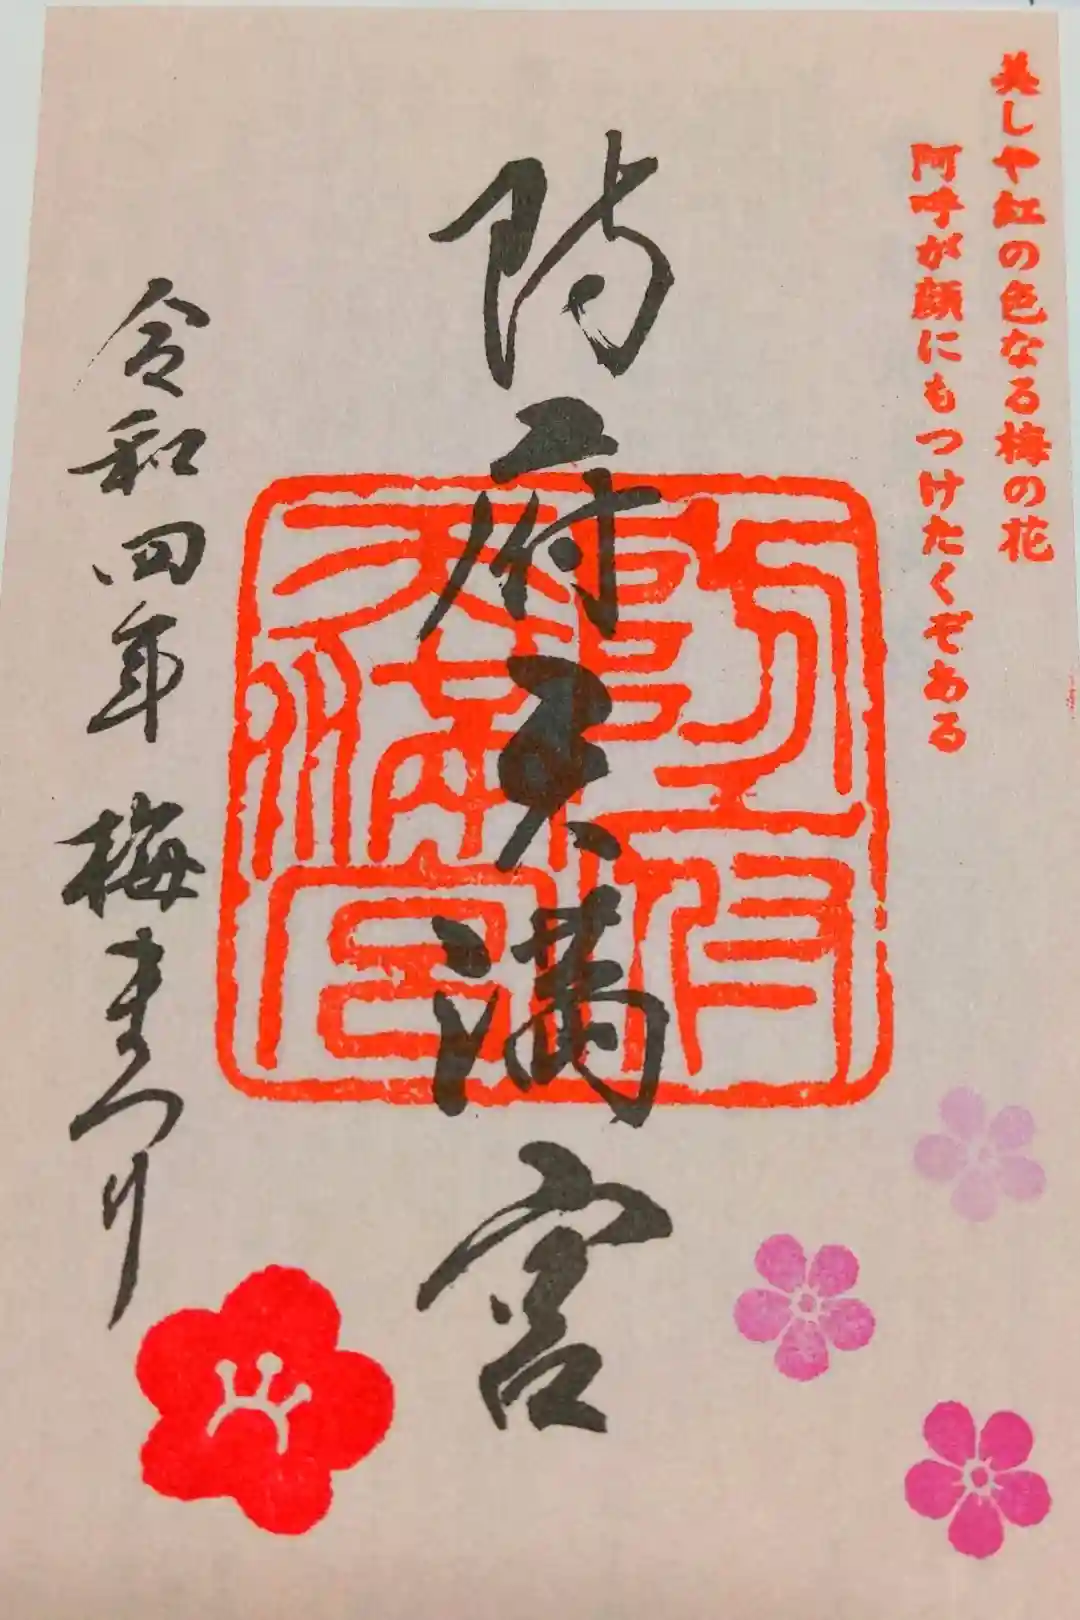 美しや紅の色なる梅の花
阿呼が顔にもつけたくぞある
防府天満宮
令和四年 梅まつり